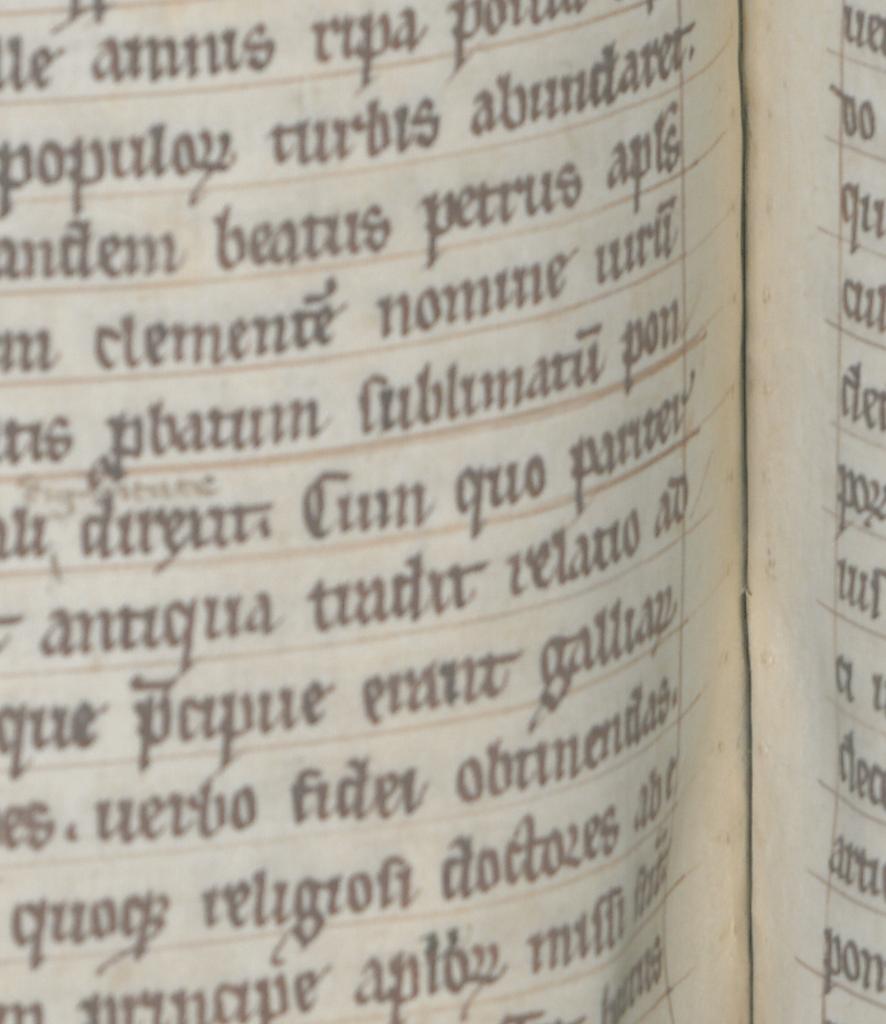 lle amnis ripa
populoꝝ turbis abundaret.
andem beatus petrus apls
m clementē nomine uirū
tis ꝓbatum sublimatū pon
ali direxit. Cum quo pariter
antiqua tradit relatio ad
que p̄cipue erant galliaꝝ
es. uerbo fidei obtinendas.
quoqꝫ religiosi doctores ab e
m principe apłoꝝ missi
qu
cul
poꝝ
a
artu
pon